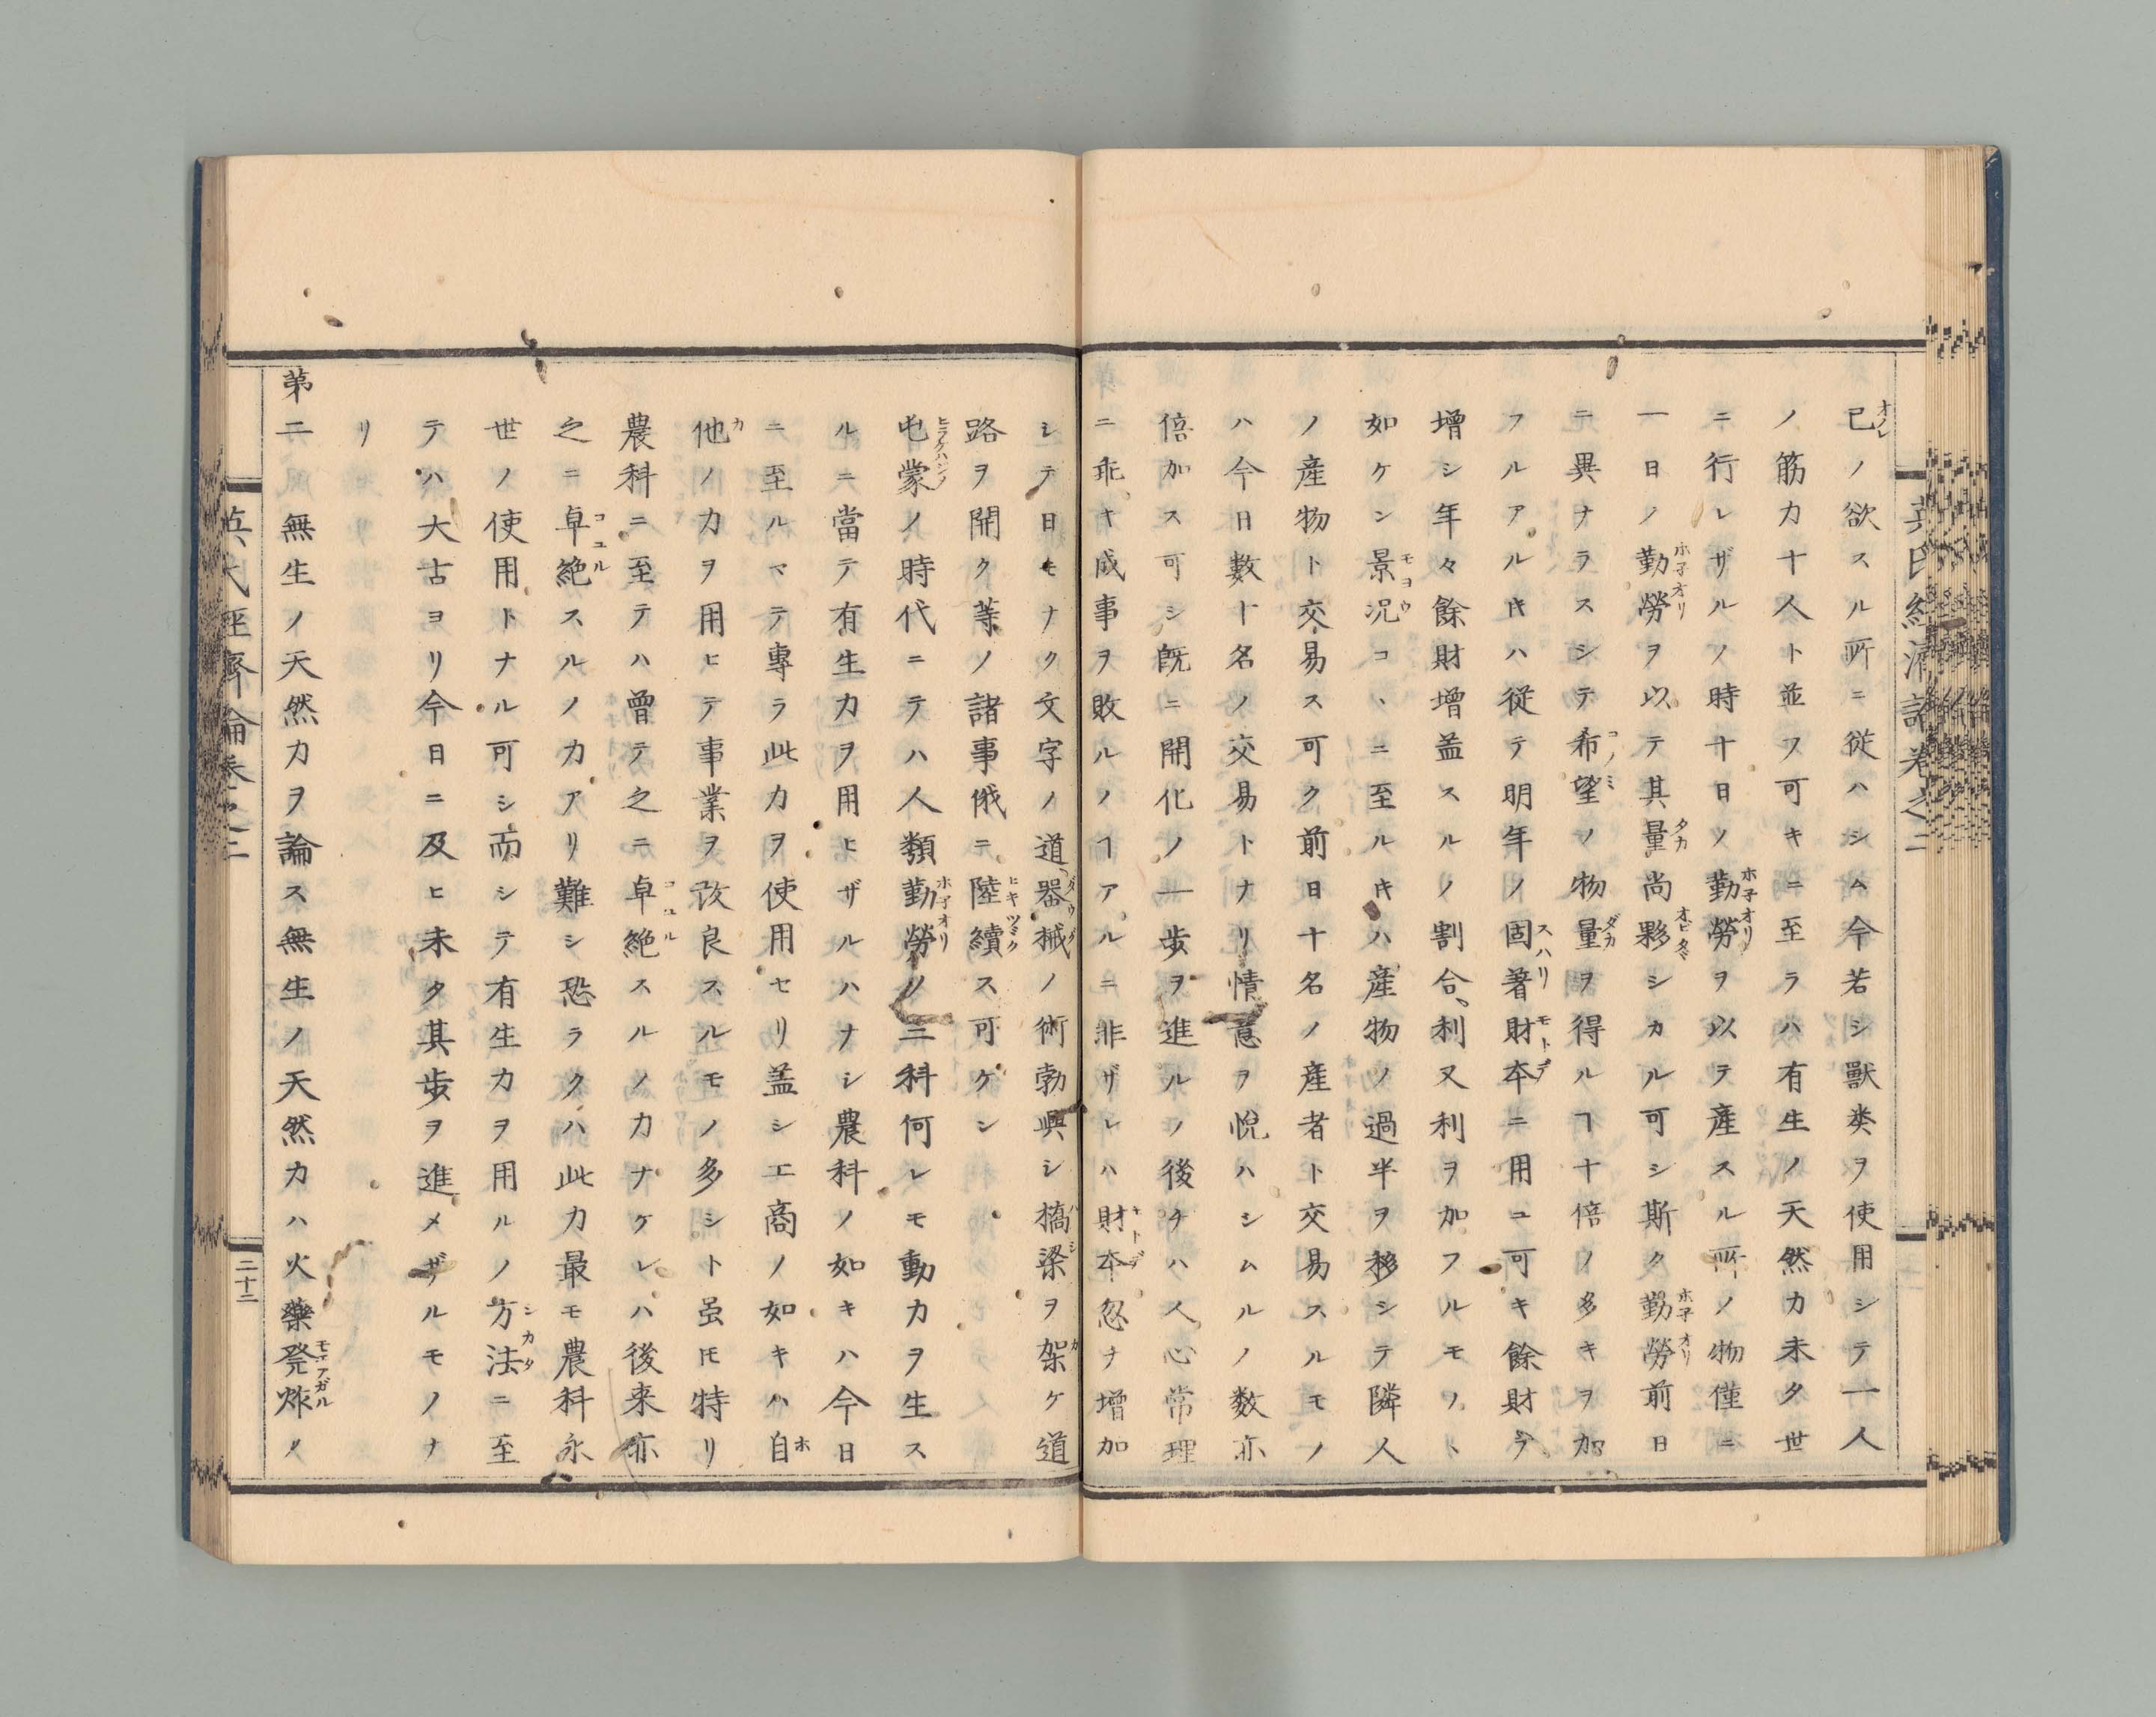 英氏經濟論卷之二
己ノ欲スル所ニ従ハシム今若シ獸类ヲ使用シテ一人
ノ筋力十人ト並フ可キニ至ラハ有生ノ天然力未タ世
ニ行レザルノ時十日ノ勤勞ヲ以テ産スル所ノ物僅ニ
一日ノ勤勞ヲ以テ其量尚夥シカル可シ斯ク勤勞前日
ニ異ナラスシテ希望ノ物量ヲ得ルヿ十倍ノ多キヲ加
フルアルキハ従テ明年ノ固著財本ニ用ユ可キ餘財ヲ
増シ年々餘財増益スルノ割合、利又利ヲ加フルモノヽ
如ケン景況コヽニ至ルキハ産物ノ過半ヲ移シテ隣人
ノ産物ト交易ス可ク前日十名ノ産者ト交易スルモノ
ハ今日數十名ノ交易トナリ情意ヲ悅ハシムルノ数亦
倍加ス可シ既ニ開化ノ一歩ヲ進ルノ後チハ人心常理
ニ乖キ成事ヲ敗ルノヿアルニ非ザレハ財本忽ナ增加
シテ日モナク文字ノ道、器械ノ術勃興シ橋梁ヲ架ケ道
路ヲ開ク等ノ諸事俄ニ陸續ス可ケン
屯蒙ノ時代ニテハ人類勤勞ノ三科何レモ動力ヲ生ス
ルニ當テ有生力ヲ用ヒザルハナシ農科ノ如キハ今日
ニ至ルマテ專ラ此力ヲ使用セリ蓋シ工商ノ如キハ自
他ノ力ヲ用ヒテ事業ヲ改良スルモノ多シト虽𪜈特リ
農科ニ至テハ曾テ之ニ卓絶スルノ力ナケレハ後来亦
之ニ卓絶スルノ力アリ難シ恐ラクハ此力最モ農科永
世ノ使用トナル可シ而シテ有生力ヲ用ルノ方法ニ至
テハ大古ヨリ今日ニ及ヒ未タ其歩ヲ進メザルモノナ
リ
第二無生ノ天然力ヲ論ス無生ノ天然力ハ火藥発炸ノ
英氏經齊論卷之二
二十二